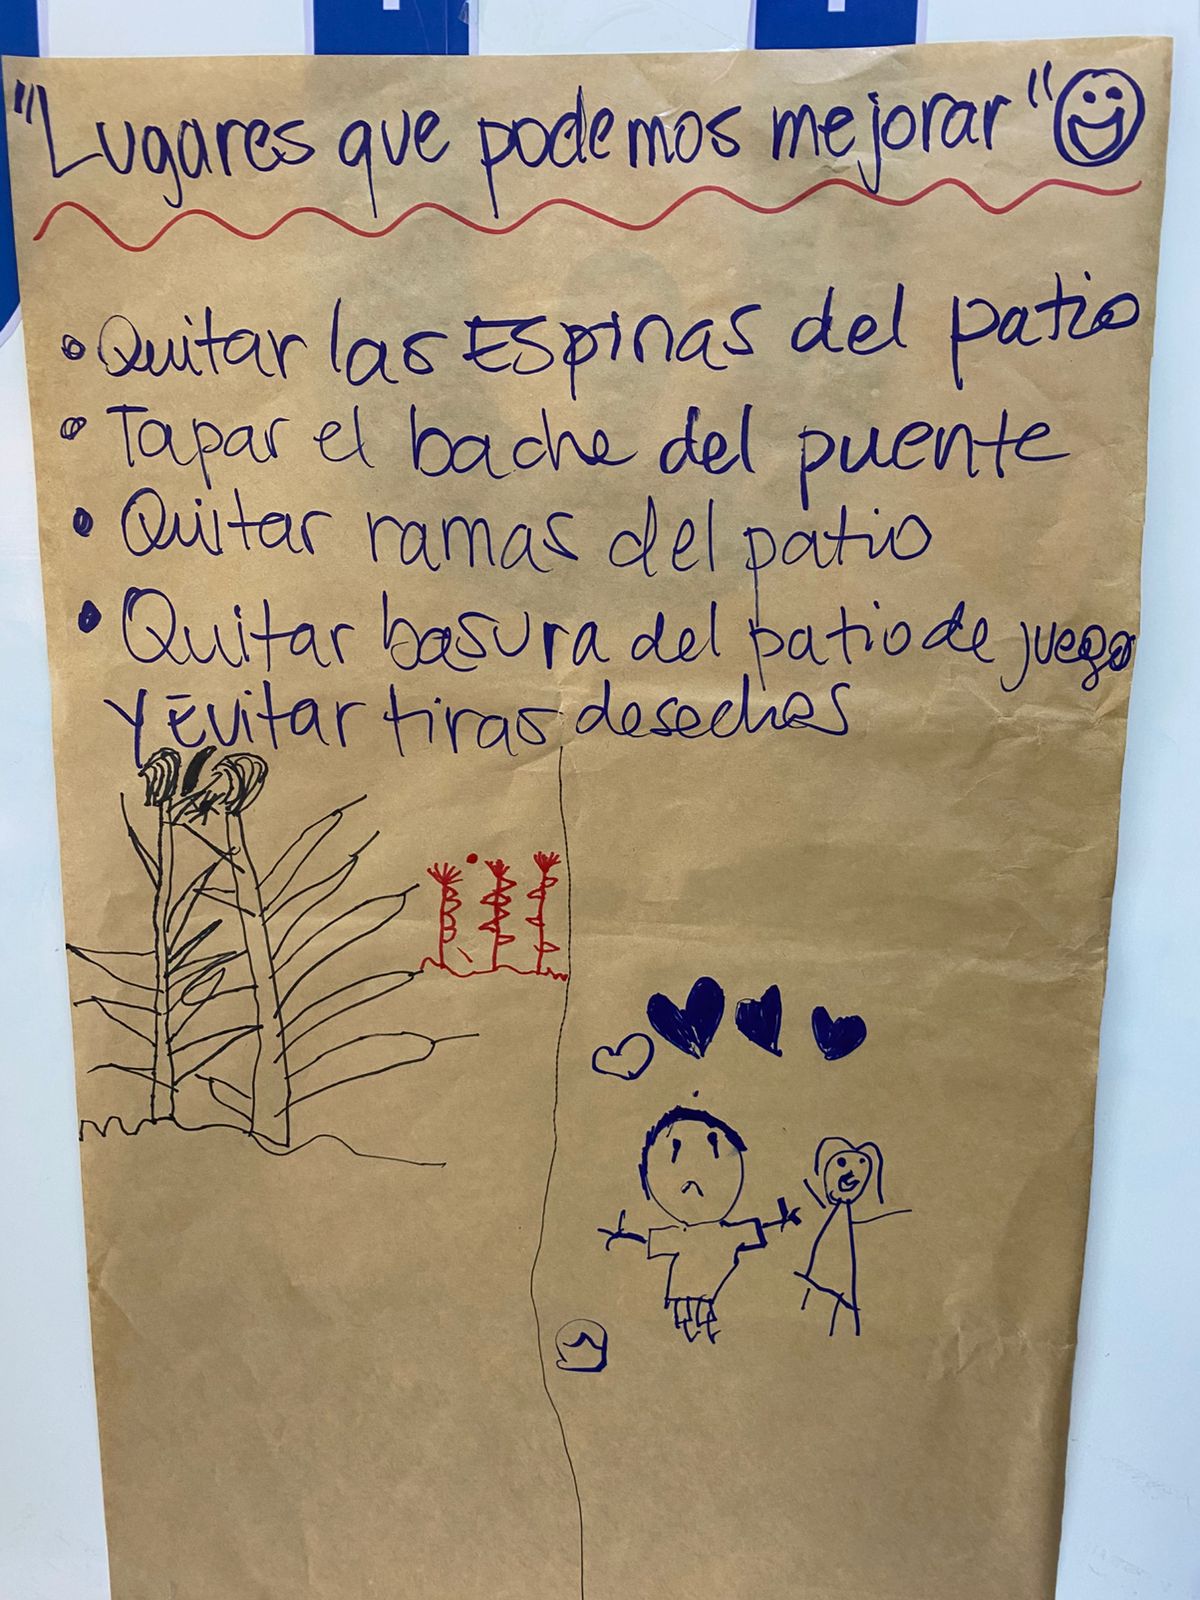 "Lugares que podemos mejorar"
• Quitar las Espinas del patio
• Tapar el bache del puente
• Quitar ramas del patio
• Quitar basura del patio de juego
y Evitar tiras desechos